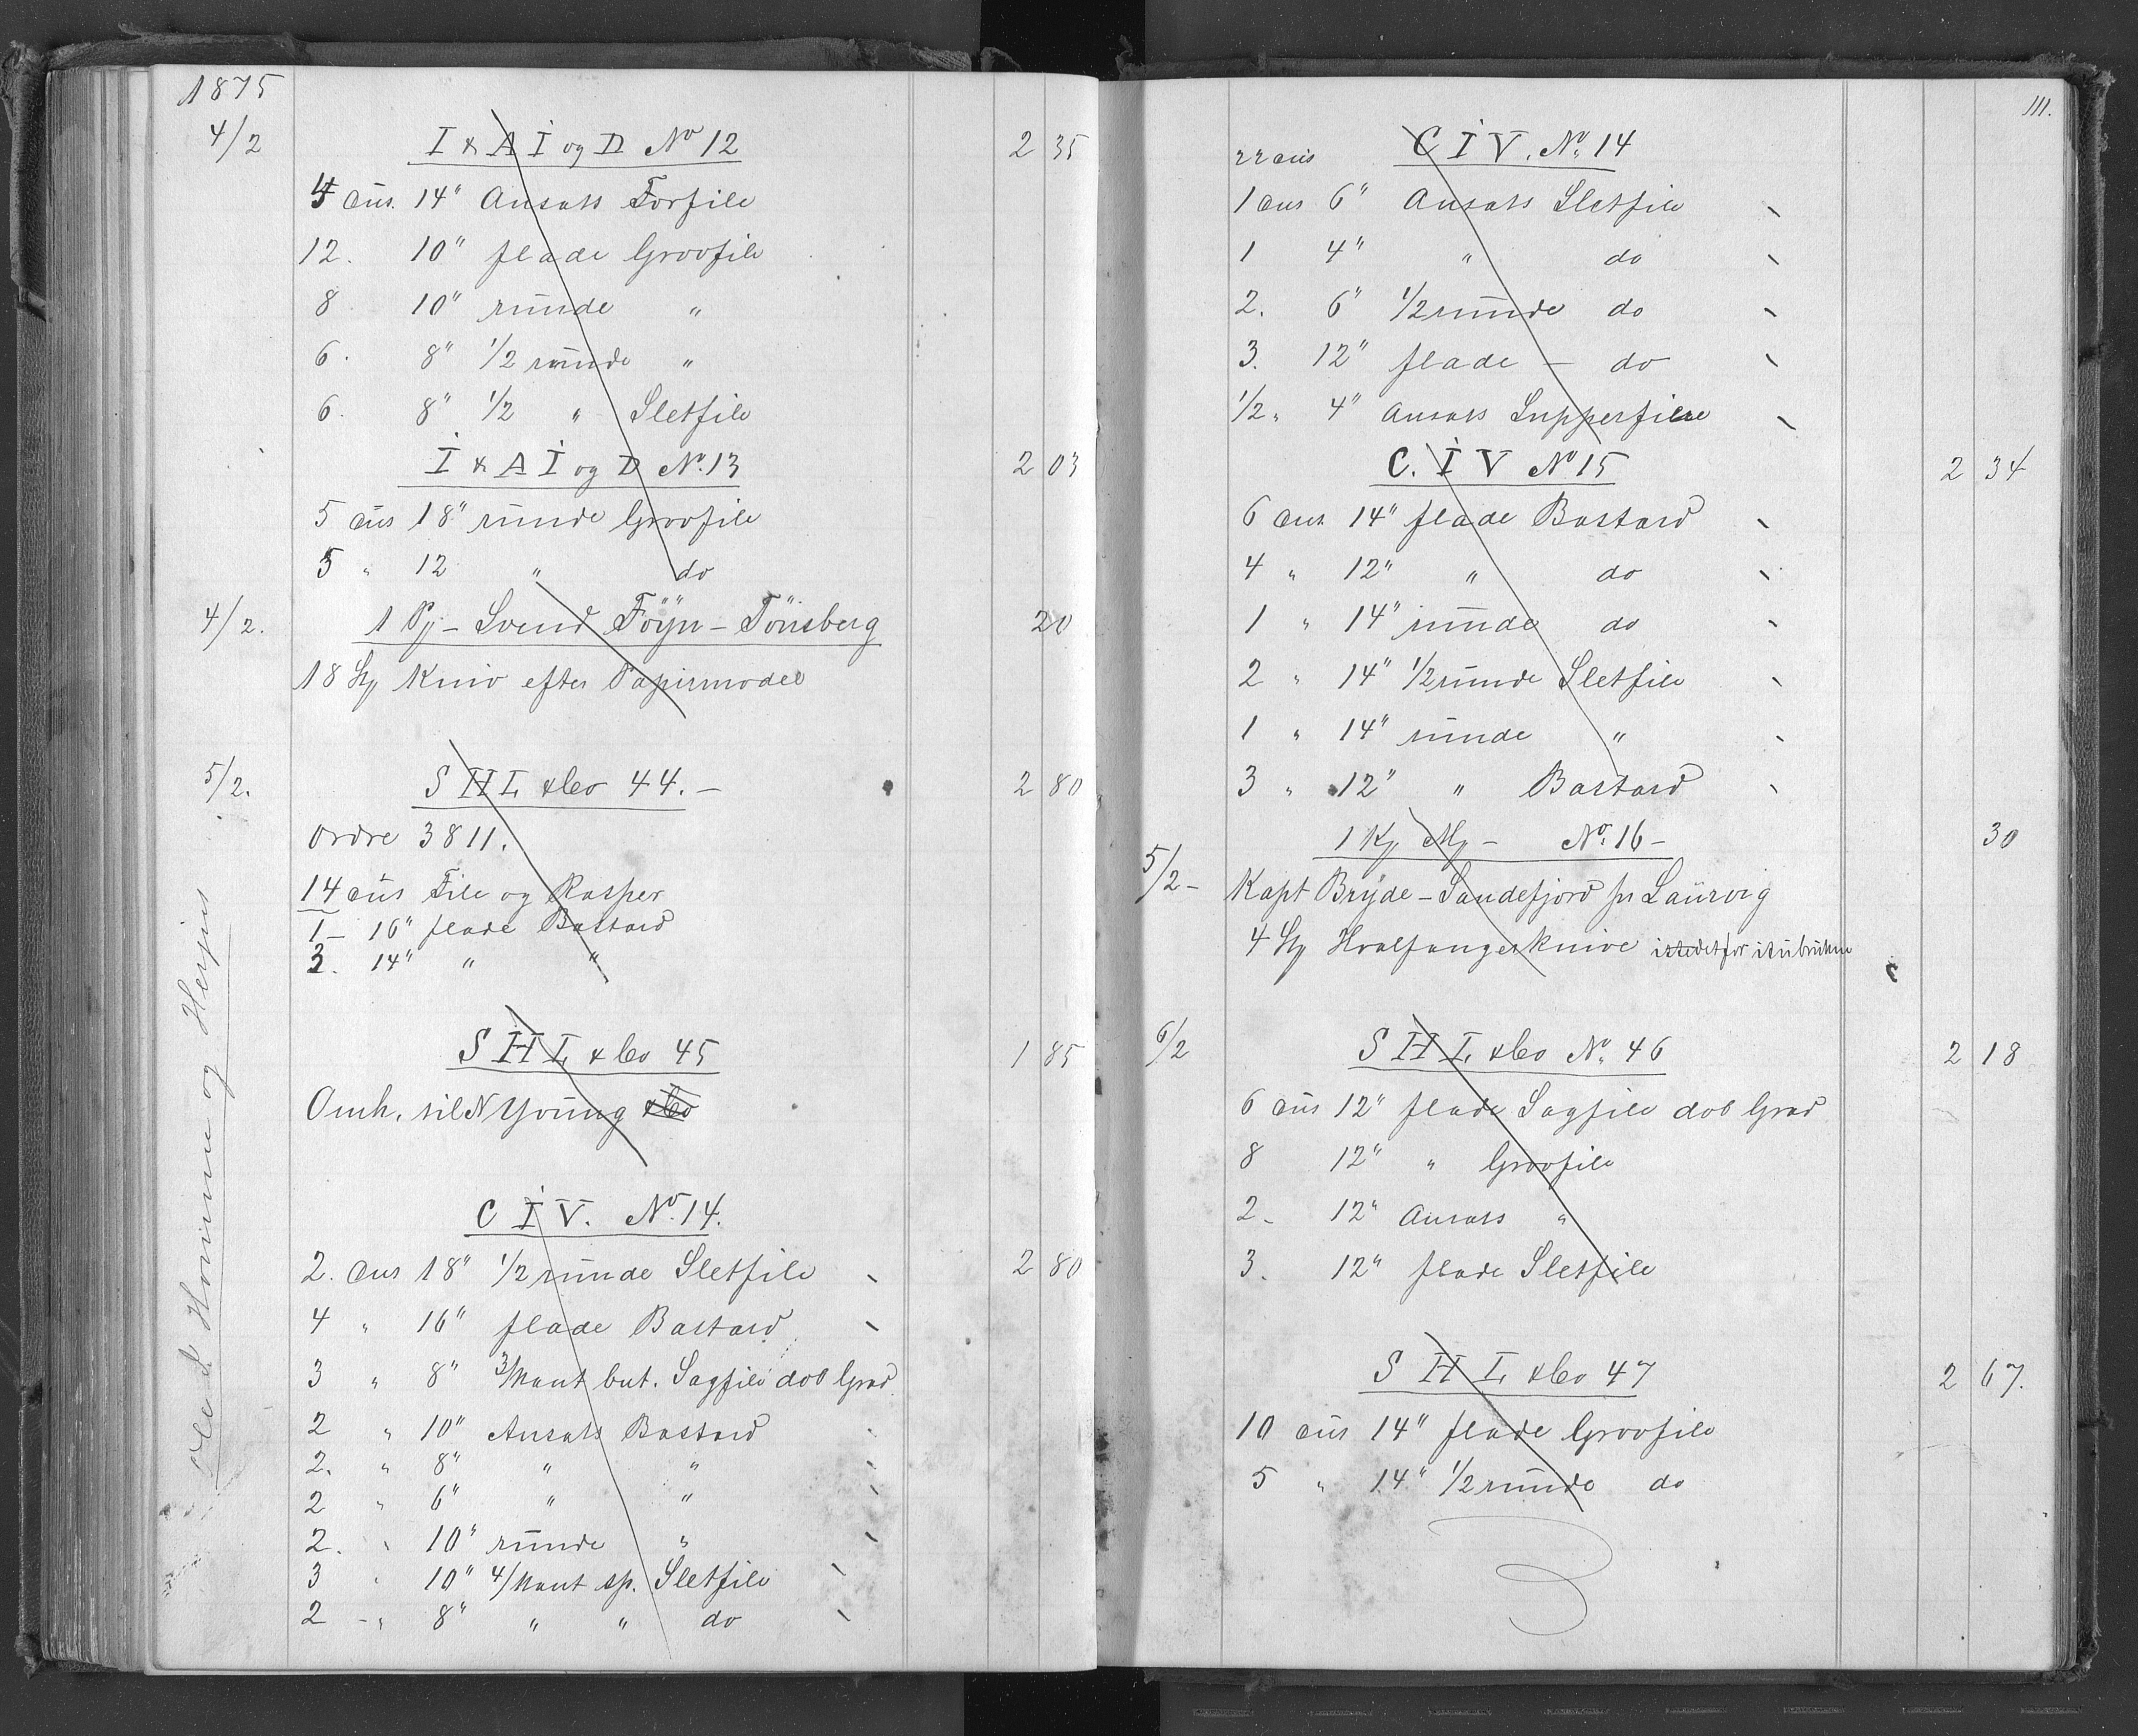 1875
4/2 I & A I og D No 12 2 35
4 dus. 14" Ansats Forfile
12. 10" flade Groofile
8 10" runde "
6. 8" 1/2 runde "
6. 8" 1/2 " Sletfile
I & A I og D No. 13 2 03
5 dus 18" runde Groofile
5 " 12 " do
4/2. 1 Pj - Svend Föyn - Tönsberg 20
18 St Kniv efter Papirmodel
5/2. S H L & Co 44. - 2 80
Ordre 3811.
14 dus File og Rasper
1 - 16" flade Bastard
3. 14" " "
S H L & Co 45 1 85
Omh. til N Young & Co
C I V. No. 14.
2. dus 18" 1/2 runde Sletfile 2 80
4 " 16" flade Bastard
3 " 8" 3/kant but. Sagfile dob Grad
2 " 10" Ansats Bastard
2. " 8" " "
2 " 6" " "
2. " 10" runde "
3 " 10" 4/kant sp. Sletfile
2 - " 8" " " do
og
111.
22 dus C I V. No. 14
1 dus 6" Ansats Sletfile
1 4" " do
2. 6" 1/2 runde do
3. 12" flade - do
1/2 " 4" Ansats
C. I V No 15 2 34
6 dus 14" flade Bastard
4 " 12" " do
1 " 14" runde do
2 " 14" 1/2 runde Sletfile
1 " 14" runde "
3 " 12" " Bastard
1 Kj Mj - No. 16 - 30
5/2 - Kapt Bryde - Sandefjord pr Laurvig
4 St Hvalfangerknive istedetfor itubrukne
6/2 S H L & Co No. 46 2 18
6 dus 12" flade Sagfile dob Grad
8 12" " Groofile
2 - 12" Ansats "
3. 12" flade Sletfile
S H L & Co 47 2 67.
10 dus 14" flade Groofile
5 " 14" 1/2 runde do